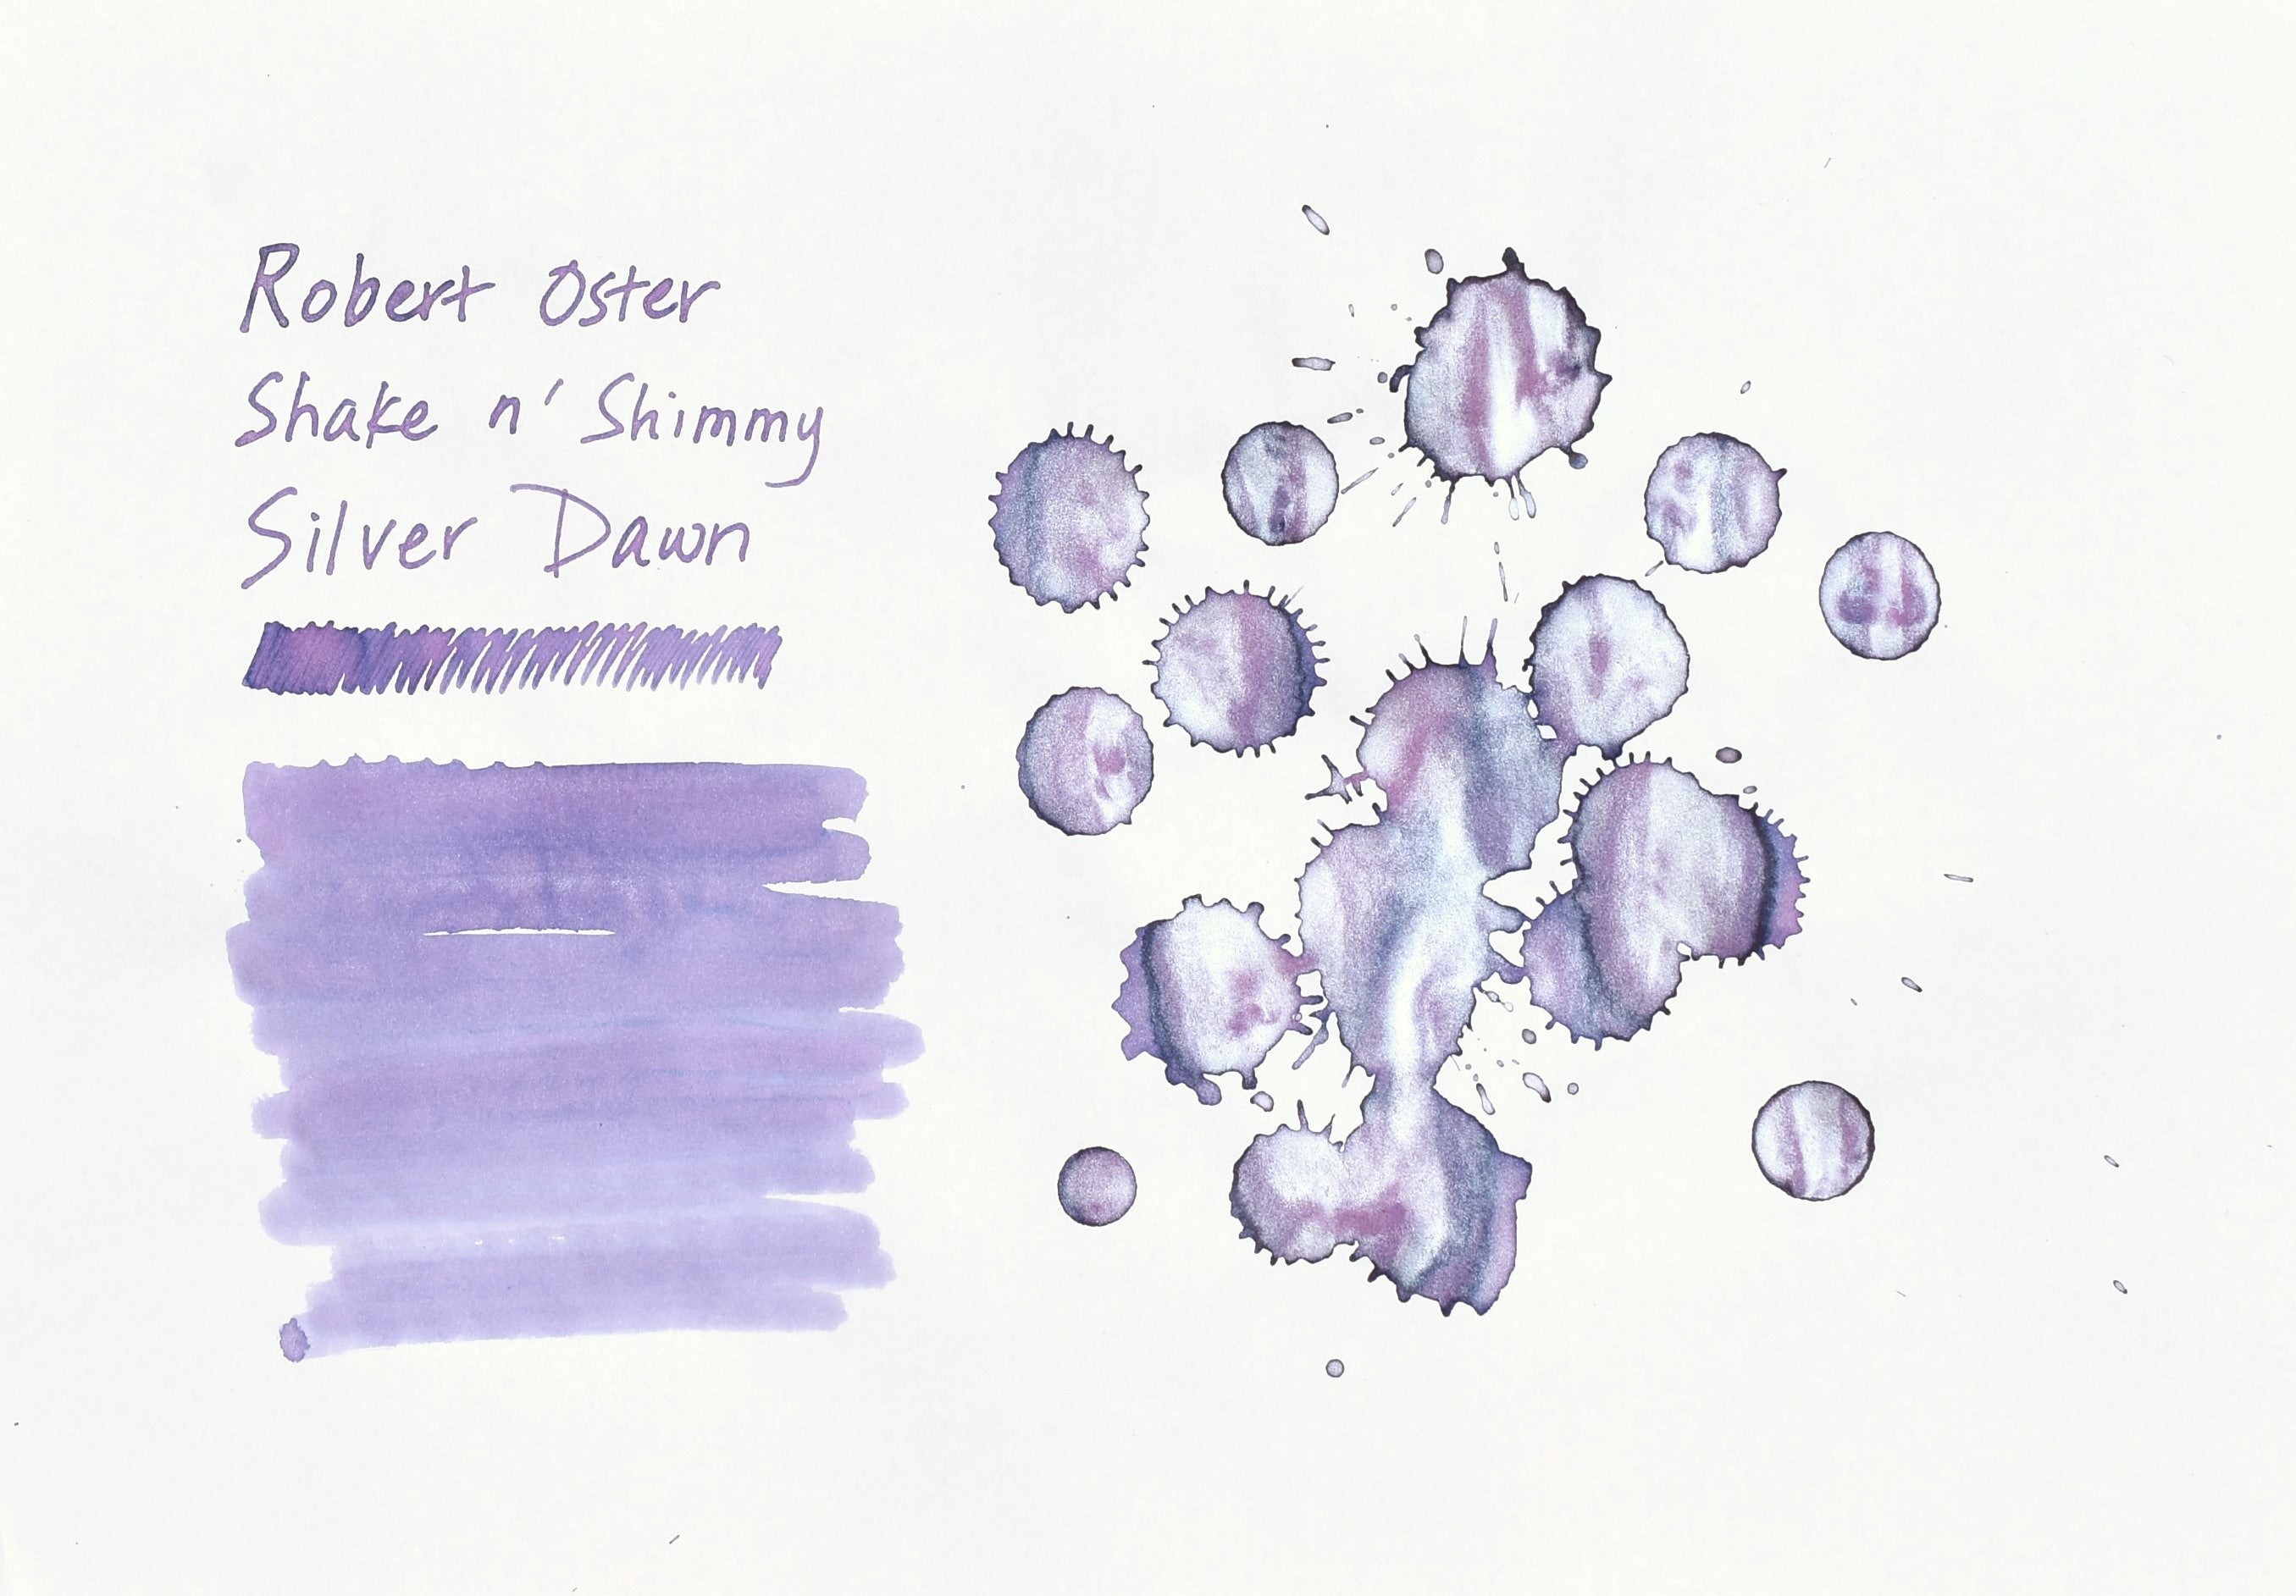 Robert Oster
Shake n' Shimmy
Silver Dawn